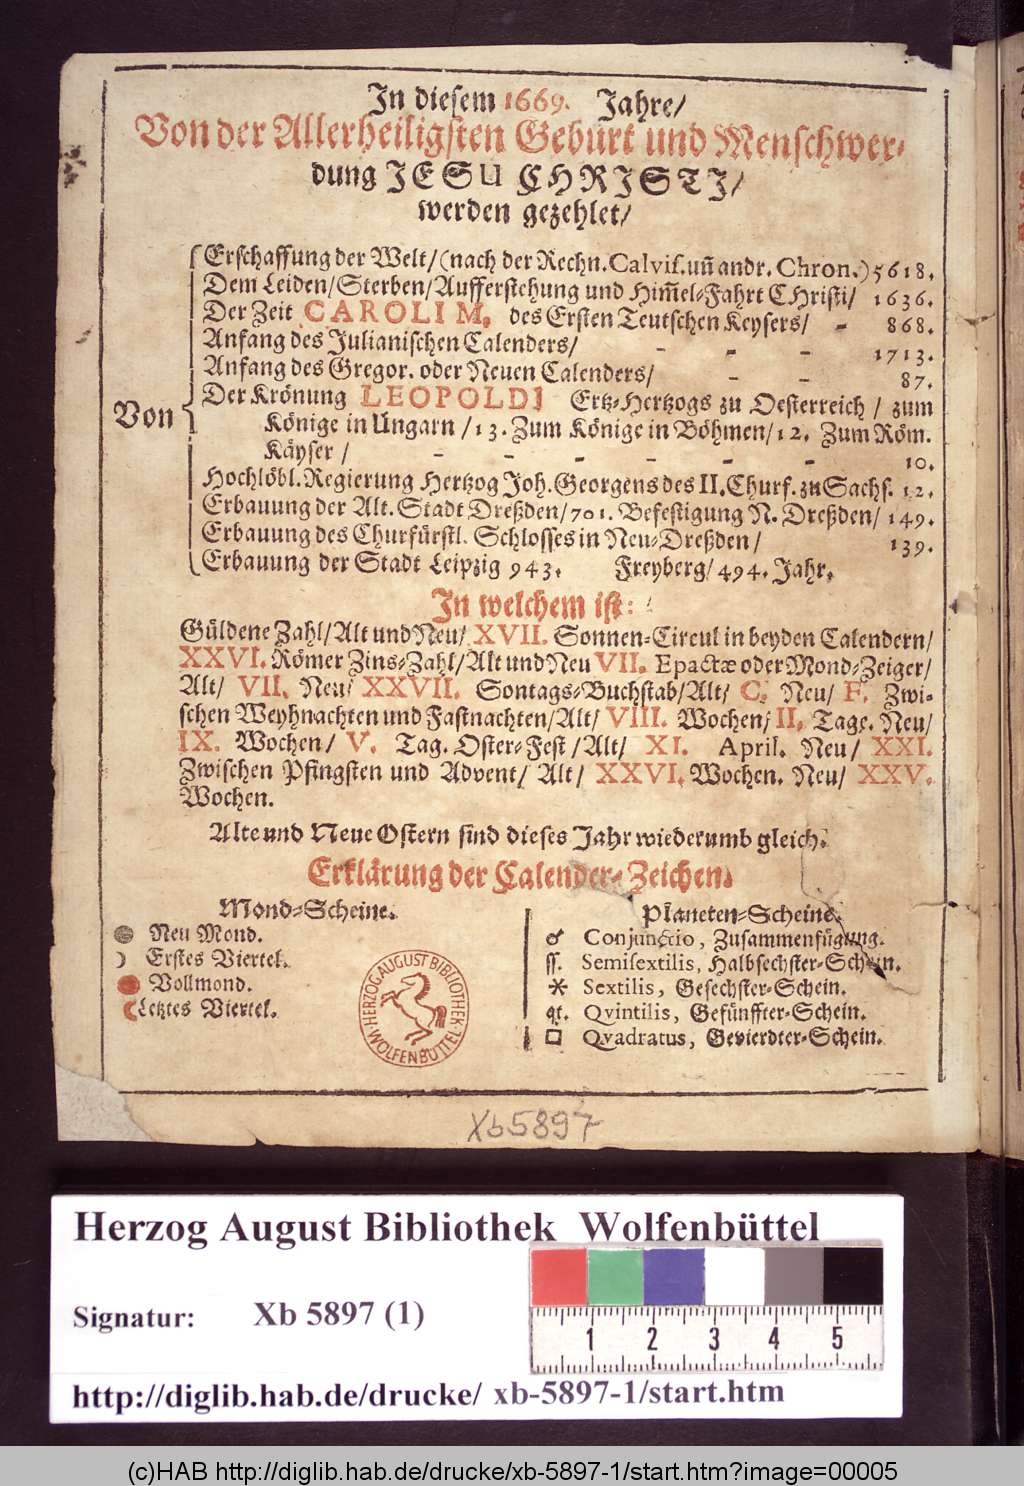 In diesem 1669. Jahre/
Von der Allerheiligsten Geburt und Menschwer-
dung JESU CHRISTI/
werden gezehlet/
Von
Erschaffung der Welt/(nach der Rechn. Calvis. uñ andr. Chron.) 5618.
Dem Leiden/Sterben/Aufferstehung und Him̃el-Fahrt CHristi/ 1636.
Der Zeit CAROLI M. des Ersten Teutschen Keysers/ - 868.
Anfang des Julianischen Calenders/ - - - 1713.
Anfang des Gregor. oder Neuen Calenders/ - - 87.
Der Krönung LEOPOLDI Ertz-Hertzogs zu Oesterreich / zum
Könige in Ungarn /13. Zum Könige in Böhmen/12. Zum Röm.
Käyser / - - - - - - 10.
Hochlöbl. Regierung Hertzog Joh. Georgens des II. Churf. zu Sachs. 12.
Erbauung der Alt. Stadt Dreßden/701. Befestigung N. Dreßden/ 149.
Erbauung des Churfürstl. Schlosses in Neu-Dreßden/ 139.
Erbauung der Stadt Leipzig 943. Freyberg/494. Jahr.
In welchem ist:
Güldene Zahl/Alt und Neu/ XVII. Sonnen-Circul in beyden Calendern/
XXVI. Römer Zins-Zahl/Alt und Neu VII. Epactæ oder Mond-Zeiger/
Alt/ VII. Neu/ XXVII. Sontags-Buchstab/Alt/ C. Neu/ F. Zwi-
schen Weyhnachten und Fastnachten/Alt/ VIII. Wochen/ II. Tage. Neu/
IX. Wochen/ V. Tag. Oster-Fest /Alt/ XI. April. Neu/ XXI.
Zwischen Pfingsten und Advent/ Alt/ XXVI. Wochen. Neu/ XXV.
Wochen.
Alte und Neue Ostern sind dieses Jahr wiederumb gleich.
Erklärung der Calender-Zeichen.
Mond-Scheine.
Neu Mond.
☽ Erstes Viertel.
Vollmond.
Letztes Viertel.
Planeten-Scheine.
☌ Conjunctio, Zusammenfügung.
ss. Semisextilis, Halbsechster-Schein.
⚹ Sextilis, Gesechster-Schein.
qt. Qvintilis, Gefünffter-Schein.
□ Qvadratus, Gevierdter-Schein.
HERZOG AUGUST BIBLIOTHEK
WOLFENBÜTTEL
Xb 5897
Herzog August Bibliothek Wolfenbüttel
Signatur: Xb 5897 (1)
1 2 3 4 5
http://diglib.hab.de/drucke/ xb-5897-1/start.htm
(c)HAB http://diglib.hab.de/drucke/xb-5897-1/start.htm?image=00005